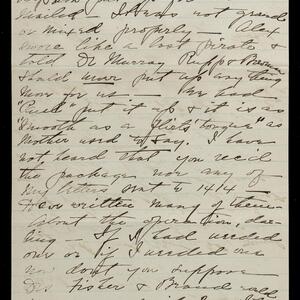 mailed — It was not grand
or mixed properly — Alex
swore like a lost pirate &
told Dr Murray Rupp &
should never put up any thing
more for us — We had
"Rush" put it up & it is as
"Smooth as a flirts tongue" as
Mother used to say. I have
not heard that you recd
the package nor any of
my letters sent to 1414 —
Have written many of them
about the operation, dar-
ling — If I had needed
one or if I needed one
now don't you suppose
Drs Fisher & Brand would